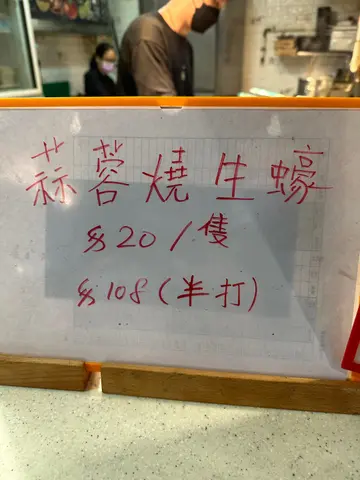 蒜蓉燒生蠔
$20/隻
$108(半打)